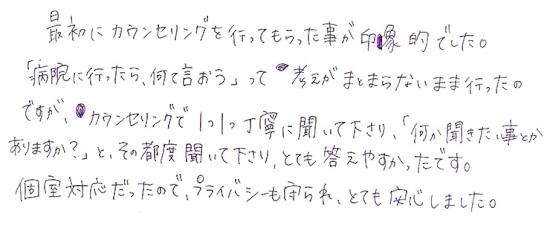 最初にカウンセリングを行ってもらった事が印象的でした。
「病院に行ったら、何て言おう」って考えがまとまらないまま行ったの
ですが、カウンセリングで1つ1つ丁寧に聞いて下さり、「何か聞きたい事とか
ありますか？」と、その都度聞いて下さり、とても答えやすかったです。
個室対応だったので、プライバシーも守られ、とても安心しました。